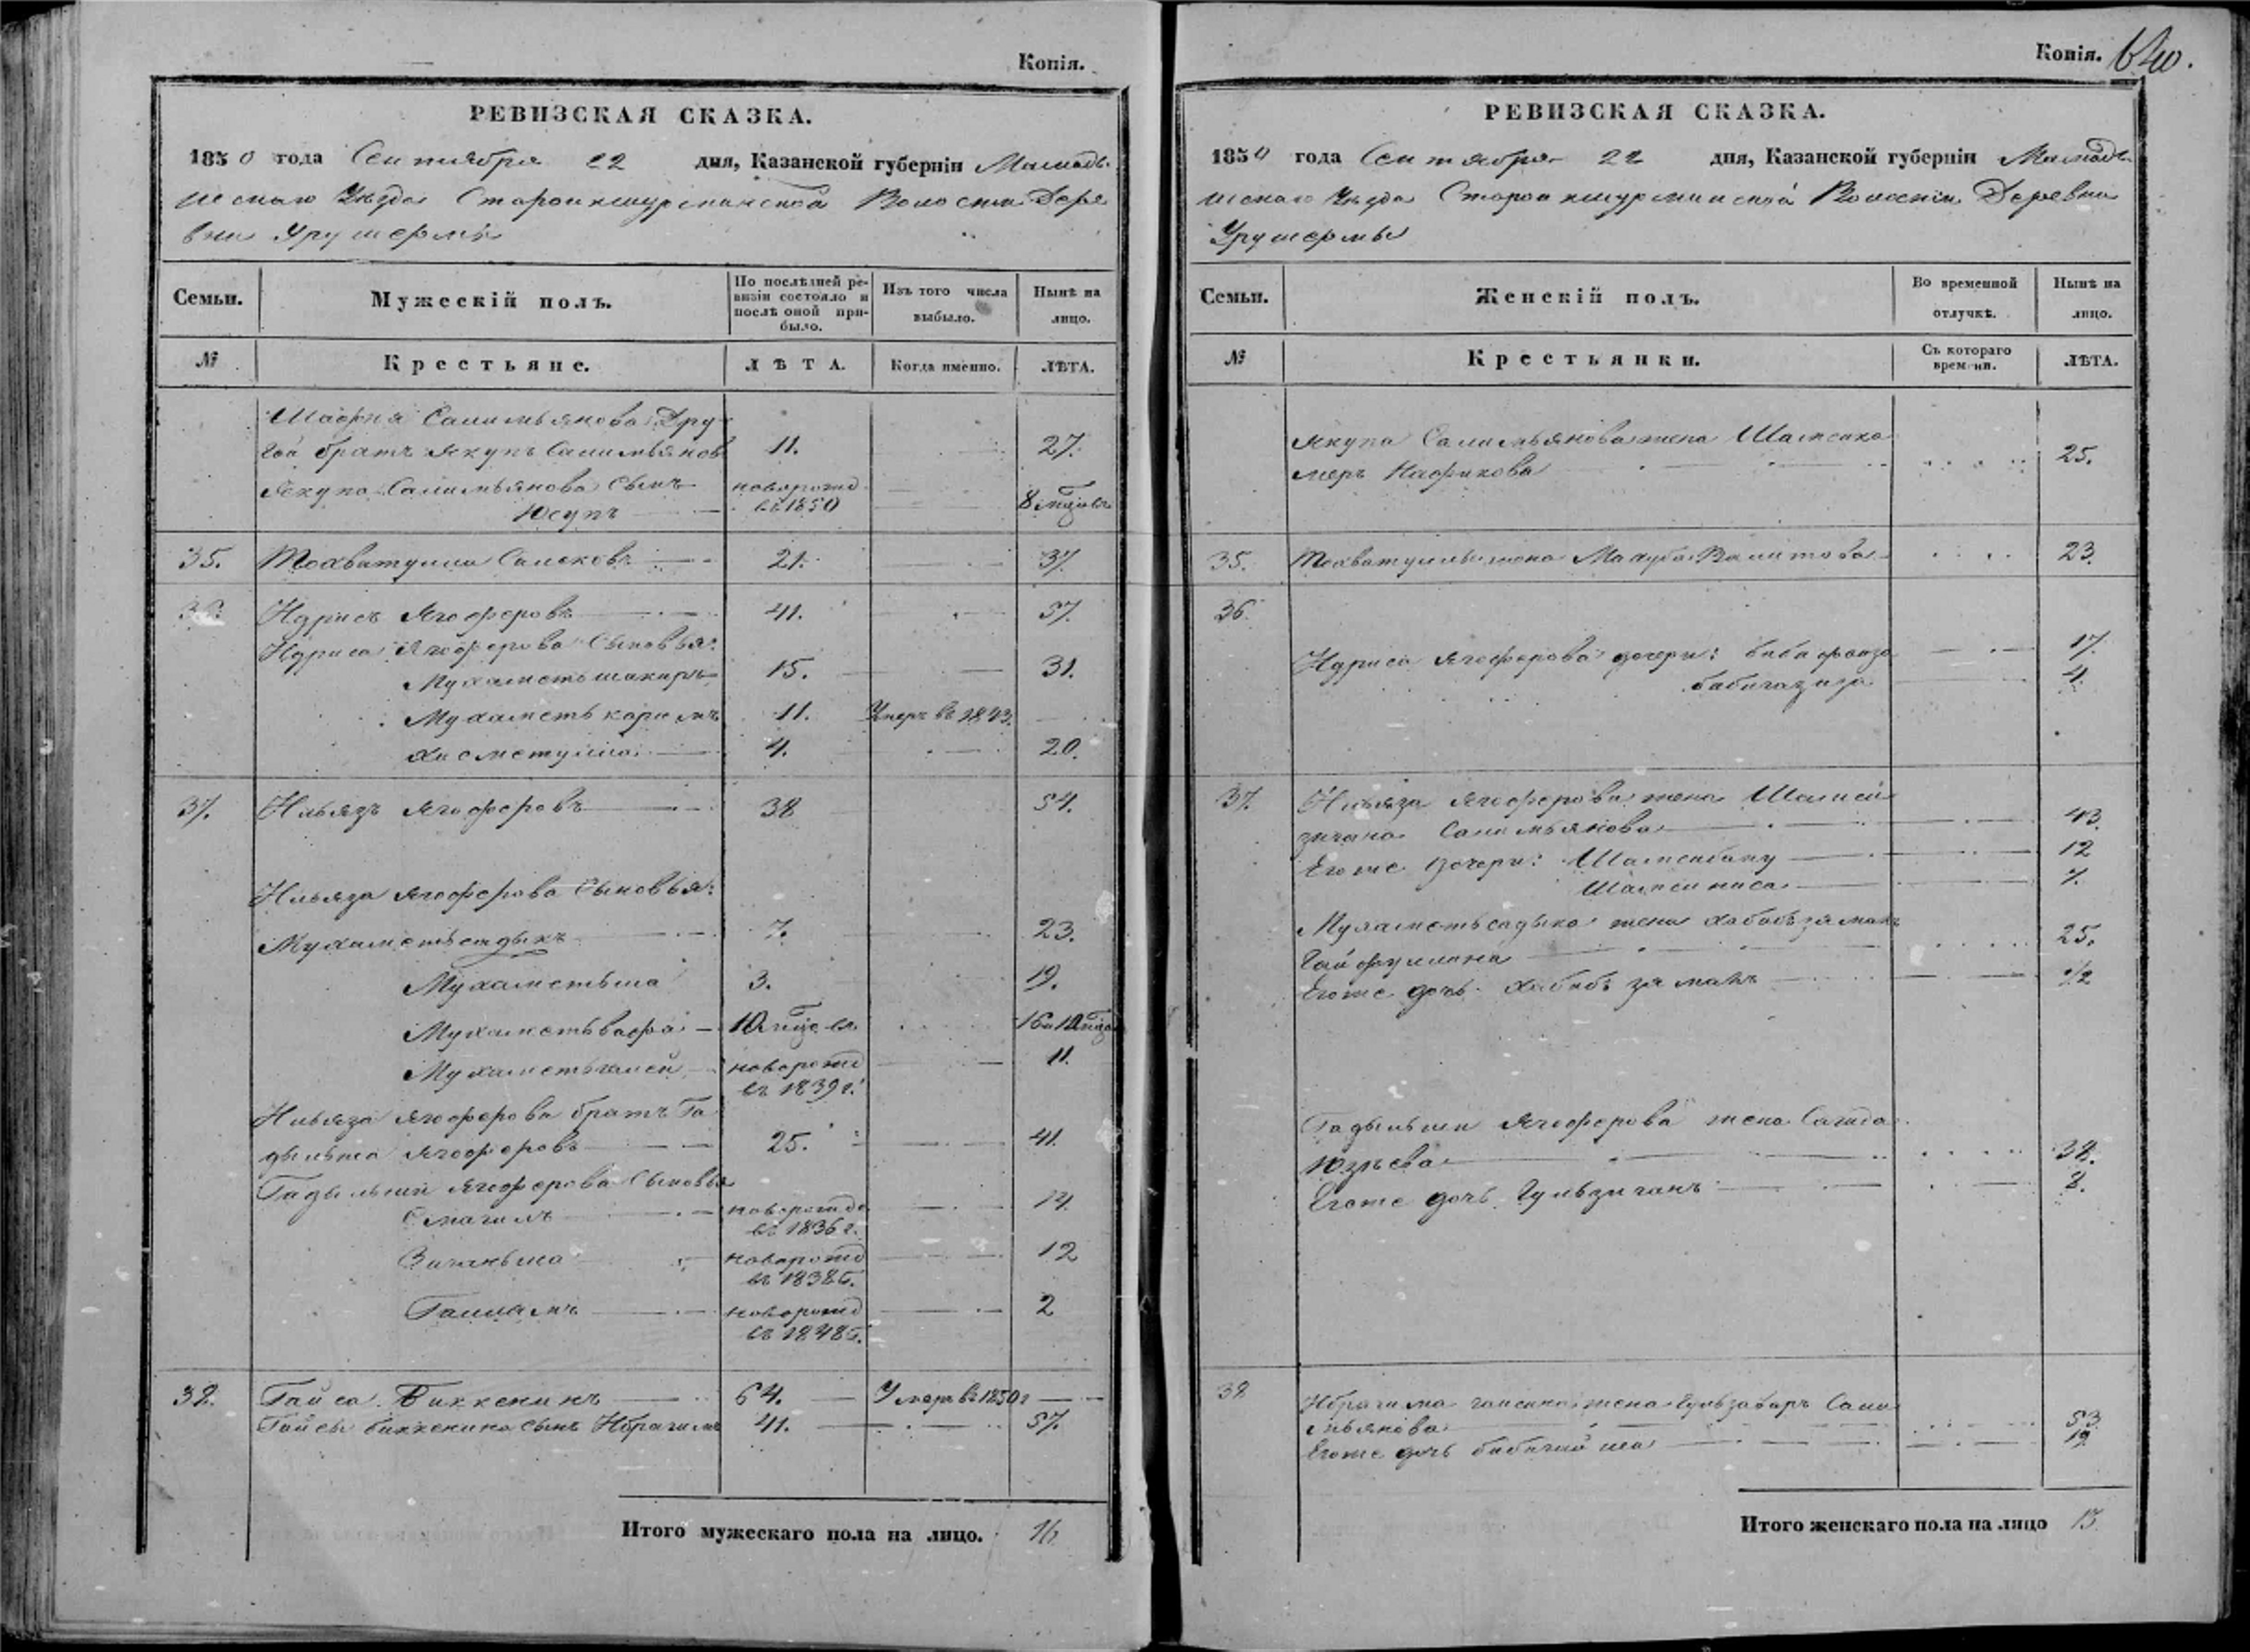 Копія.
РЕВИЗСКАЯ СКАЗКА.
1850 года Сентября 22 дня, Казанской губерніи Мамадъ
шскаго Уѣзда Староикшурминской Волости Дере
вни Урушермы
Семьи.
Мужескій полъ.
По послѣдней ре-
визіи состояло и
послѣ оной при-
было.
Изъ того числа
выбыло.
Нынѣ на
лицо.
№
Крестьяне.
ЛѢТА.
Когда именно.
ЛѢТА.
Шафія Салимьянова Дру
гой братъ Якупъ Салимьяновъ 11. 27.
Якупа Салимьянова Сынъ новорожд
Юсупъ въ 1850 8 мѣсяцовъ
35. Тохватулла Салеховъ 21. 37.
36. Идрисъ Ягоферовъ 41. 57.
Идриса Ягоферова Сыновья:
Мухаметьшакиръ 15. 31.
Мухаметькаримъ 11. Умеръ въ 1843.
Хисметулла 4. 20.
37. Ильязъ Ягоферовъ 38 54.
Ильяза Ягоферова Сыновья:
Мухаметьсадыкъ 7. 23.
Мухаметьша 3. 19.
Мухаметьвафа 10 мѣс.
Мухаметьгалей новорожд 11.
въ 1839 г.
Ильяза Ягоферова братъ Га
дыльша Ягоферовъ 25. 41.
Гадыльши Ягоферова Сыновья
Смагилъ новорожд 14.
въ 1836 г.
Зиганьша новорожд 12
въ 1838 г.
Галимъ новорожд 2
въ 1848 г.
38. Гайса Биккенинъ 64. Умеръ въ 1850 г
Гайсы биккенина сынъ Ибрагимъ 41. 57.
Итого мужескаго пола на лицо. 16
Копія. 640.
РЕВИЗСКАЯ СКАЗКА.
1850 года Сентября 22 дня, Казанской губерніи Мамадъ
шскаго Уѣзда Староикшурминской Волости Деревни
Урушермы
Семьи.
Женскій полъ.
Во временной
отлучкѣ.
Нынѣ на
лицо.
№
Крестьянки.
Съ котораго
времени.
ЛѢТА.
Якупа Салимьянова жена Шамсика
меръ Нафикова 25.
35. Тохватуллы жена Махуба Валитова 23.
36.
Идриса Ягоферова дочери: бибифаиза 17.
бибигазиза 4.
37. Ильяза Ягоферова жена Шамси
зигана Салимьянова 43.
Егоже дочери: Шамсибану 12
Шамсиниса 7.
Мухаметьсадыка жена Хабибъзямалъ
Гайфуллина 25.
Егоже дочь Хабибъ зямалъ 1/2
Гадыльши Ягоферова жена Сагида
Юзѣева 38.
Егоже дочь Гульзиганъ 8.
38 Ибрагима гаисина жена Гульзаваръ Сали
мьянова 53.
Егоже дочь бибичайша 19
Итого женскаго пола на лицо 13.